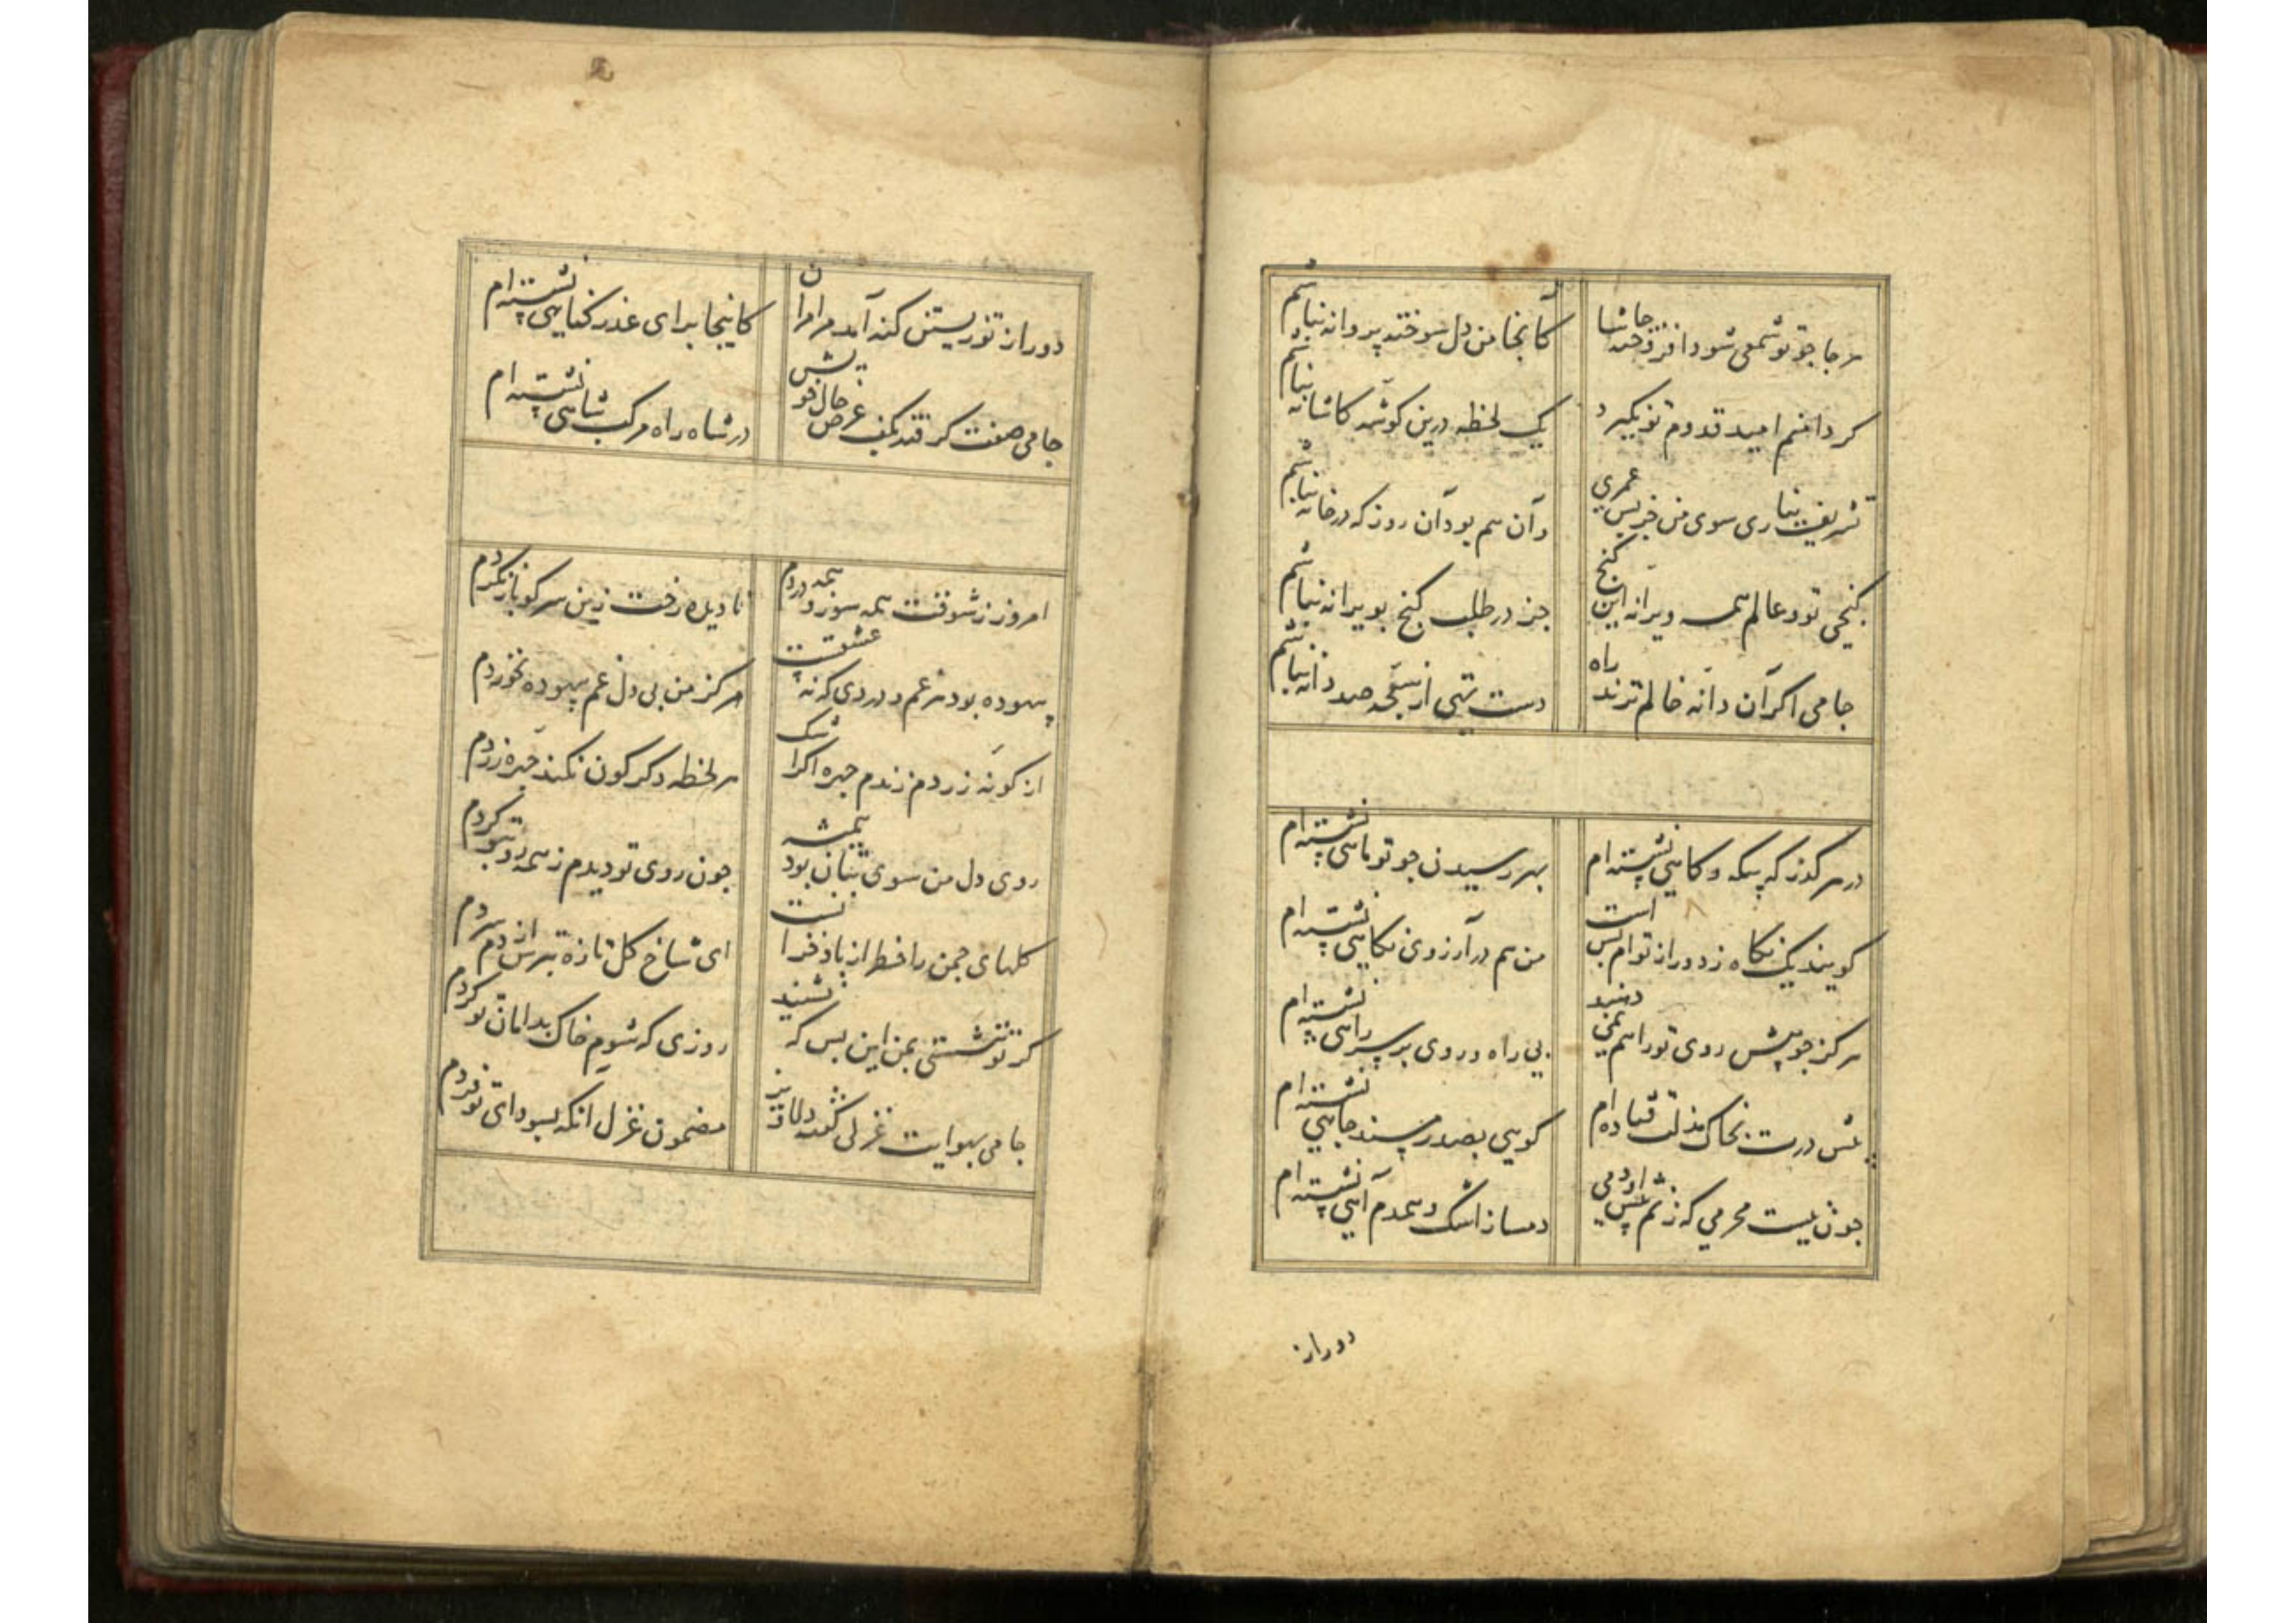 هرجا چو تو شمعی شود افروخته حاشا
کانجا من دل سوخته پروانه نباشم
گر دانم امید قدوم تو بگیرد
یک لحظه درین گوشه کاشانه نباشم
تشریف نیاری سوی من جز پس عمری
وآن هم بود آن روز که در خانه نباشم
گنجی تو و عالم همه ویرانه این گنج
جز در طلب گنج بویرانه نباشم
جامی اگر آن دانه خالم نزند راه
دست تهی از سبحه صد دانه نباشم
در هر گذر که بیگه و گاهی نشسته‌ام
بهر رسیدن چو تو ماهی نشسته‌ام
گویند یک نگاه ز دور از تو ام بس است
من هم در آرزوی نگاهی نشسته‌ام
هرگز چو پیش روی تو راهم نمی دهند
بی راه و روی بر سر راهی نشسته‌ام
پیش درت بخاک مذلت فتاده‌ام
گویی بصدر مسند جاهی نشسته‌ام
چون نیست محرمی که زنم پیش او دمی
دمساز اشک و همدم آهی نشسته‌ام
دور از
دور از تو زیستن گنه آمد مرا مران
کاینجا برای عذر گناهی نشسته‌ام
جامی صفت گرفته بکف عرض حال خویش
در شاه راه مرکب شاهی نشسته‌ام
امروز ز شوقت همه سوز و همه دردم
نادیده رخت زین سر کو باز نگردم
بیهوده بود هر غم و دردی که نه عشقت
هرگز من بی دل غم بیهوده نخوردم
از گونه زردم زندم چهره اگر اشک
هر لحظه دگرگون نکند چهره زردم
روی دل من سوی بتان بود همیشه
چون روی تو دیدم ز همه رو بتو کردم
گلهای چمن را خطر از باد خزانست
ای شاخ گل تازه بترس از دم سردم
گر تو ننشستی بمن این بس که نشیند
روزی که شوم خاک بدامان تو گردم
جامی بهوایت غزلی گفت دلاویز
مضمون غزل آنکه بسودای تو فردم